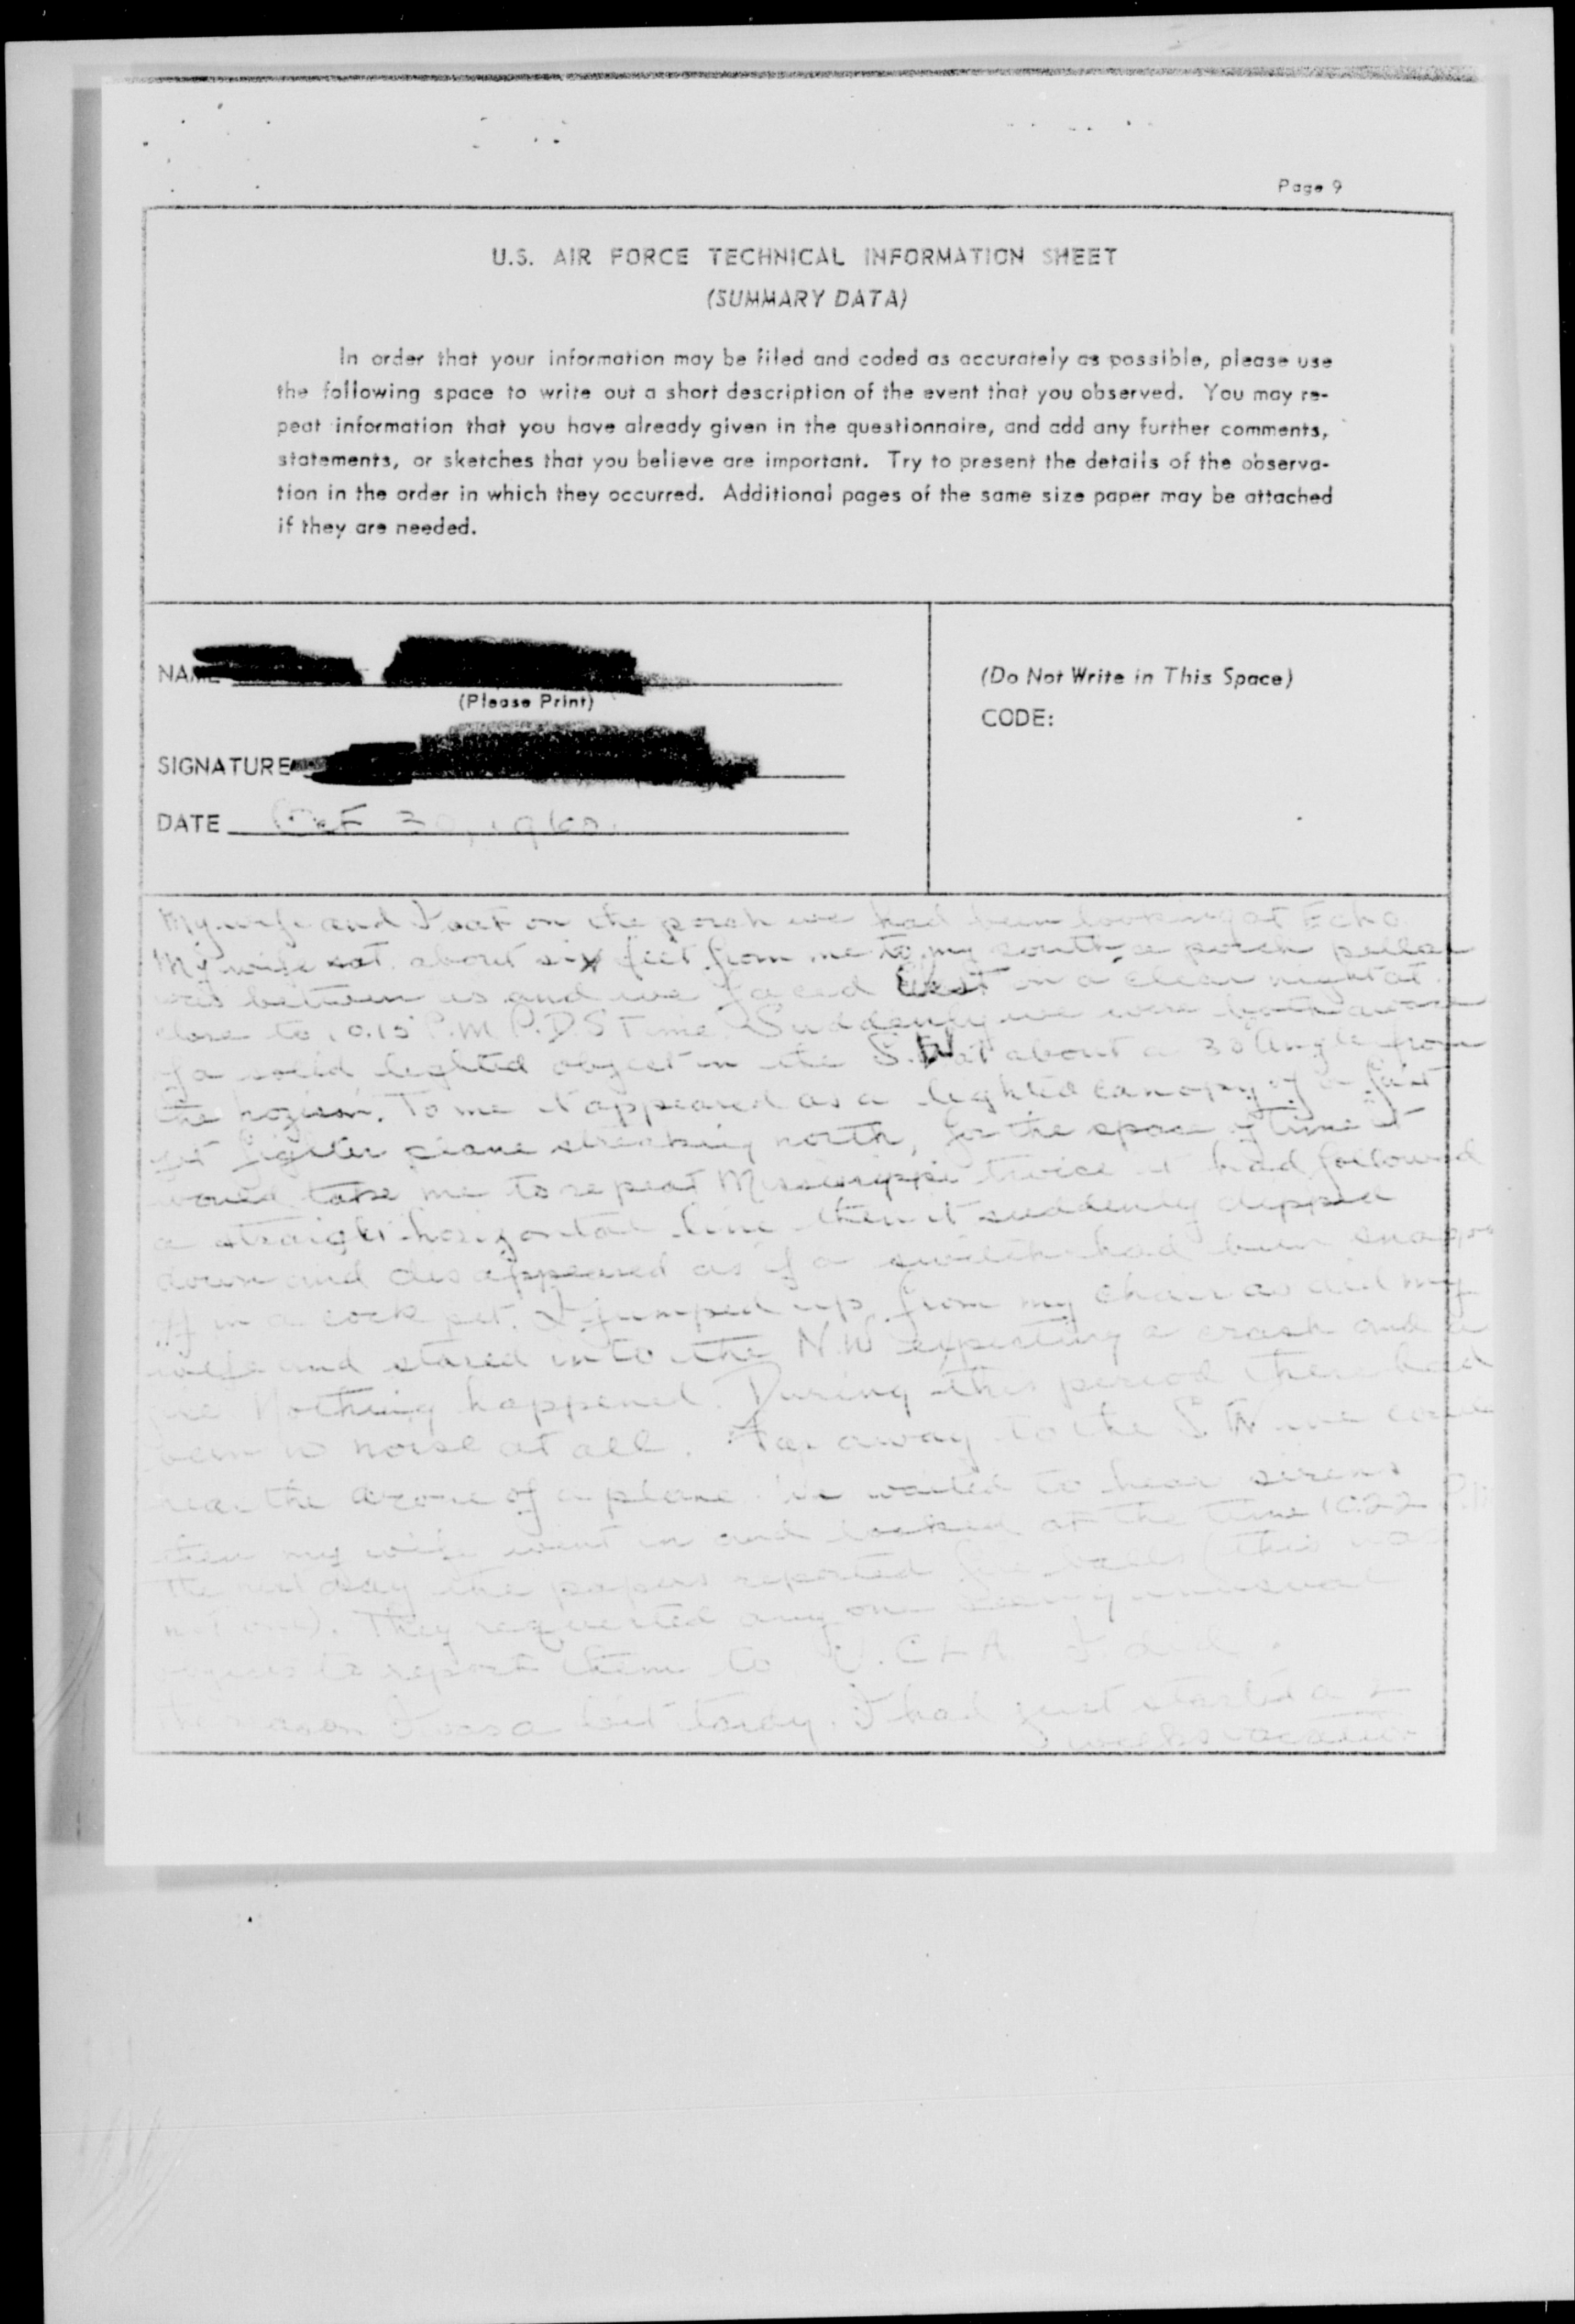 Page 9
U.S. AIR FORCE TECHNICAL INFORMATION SHEET
(SUMMARY DATA)
In order that your information may be filed and coded as accurately as possible, please use
the following space to write out a short description of the event that you observed. You may re-
peat information that you have already given in the questionnaire, and add any further comments,
statements, or sketches that you believe are important. Try to present the details of the observa-
tion in the order in which they occurred. Additional pages of the same size paper may be attached
if they are needed.
NAME
(Please Print)
(Do Not Write in This Space)
CODE:
SIGNATURE
DATE Oct 30, 1960.
My wife and I sat on the porch we had been looking at Echo
My wife sat about six feet from me to my south, a porch pillar
was between us and we faced West on a clear night at
close to 10.15 P.M. P.D.S Time. Suddenly we were both aware
of a solid lighted object in the S.W. at about a 30 angle from
the hozion. To me it appeared as a lighted canopy of a fast
jet fighter plane streaking north, for the space of time it
would take me to repeat Mississippi twice it had followed
a straight horizontal line then it suddenly dipped
down and disappeared as if a switch had been snapped
off in a cock pit. I jumped up from my chair as did my
wife and stared into the N.W expecting a crash and
fire Nothing happened. During this period there had
been no noise at all. Far away to the S.W we could
hear the drone of a plane. We waited to hear sirens
then my wife went in and looked at the time 10:22 P.M
The next day the papers reported fire balls (this was
not one). They requested any one seeing unusual
objects to report them to U.CLA I did.
reason I was a bit tardy. I had just started a 2
weeks vacation